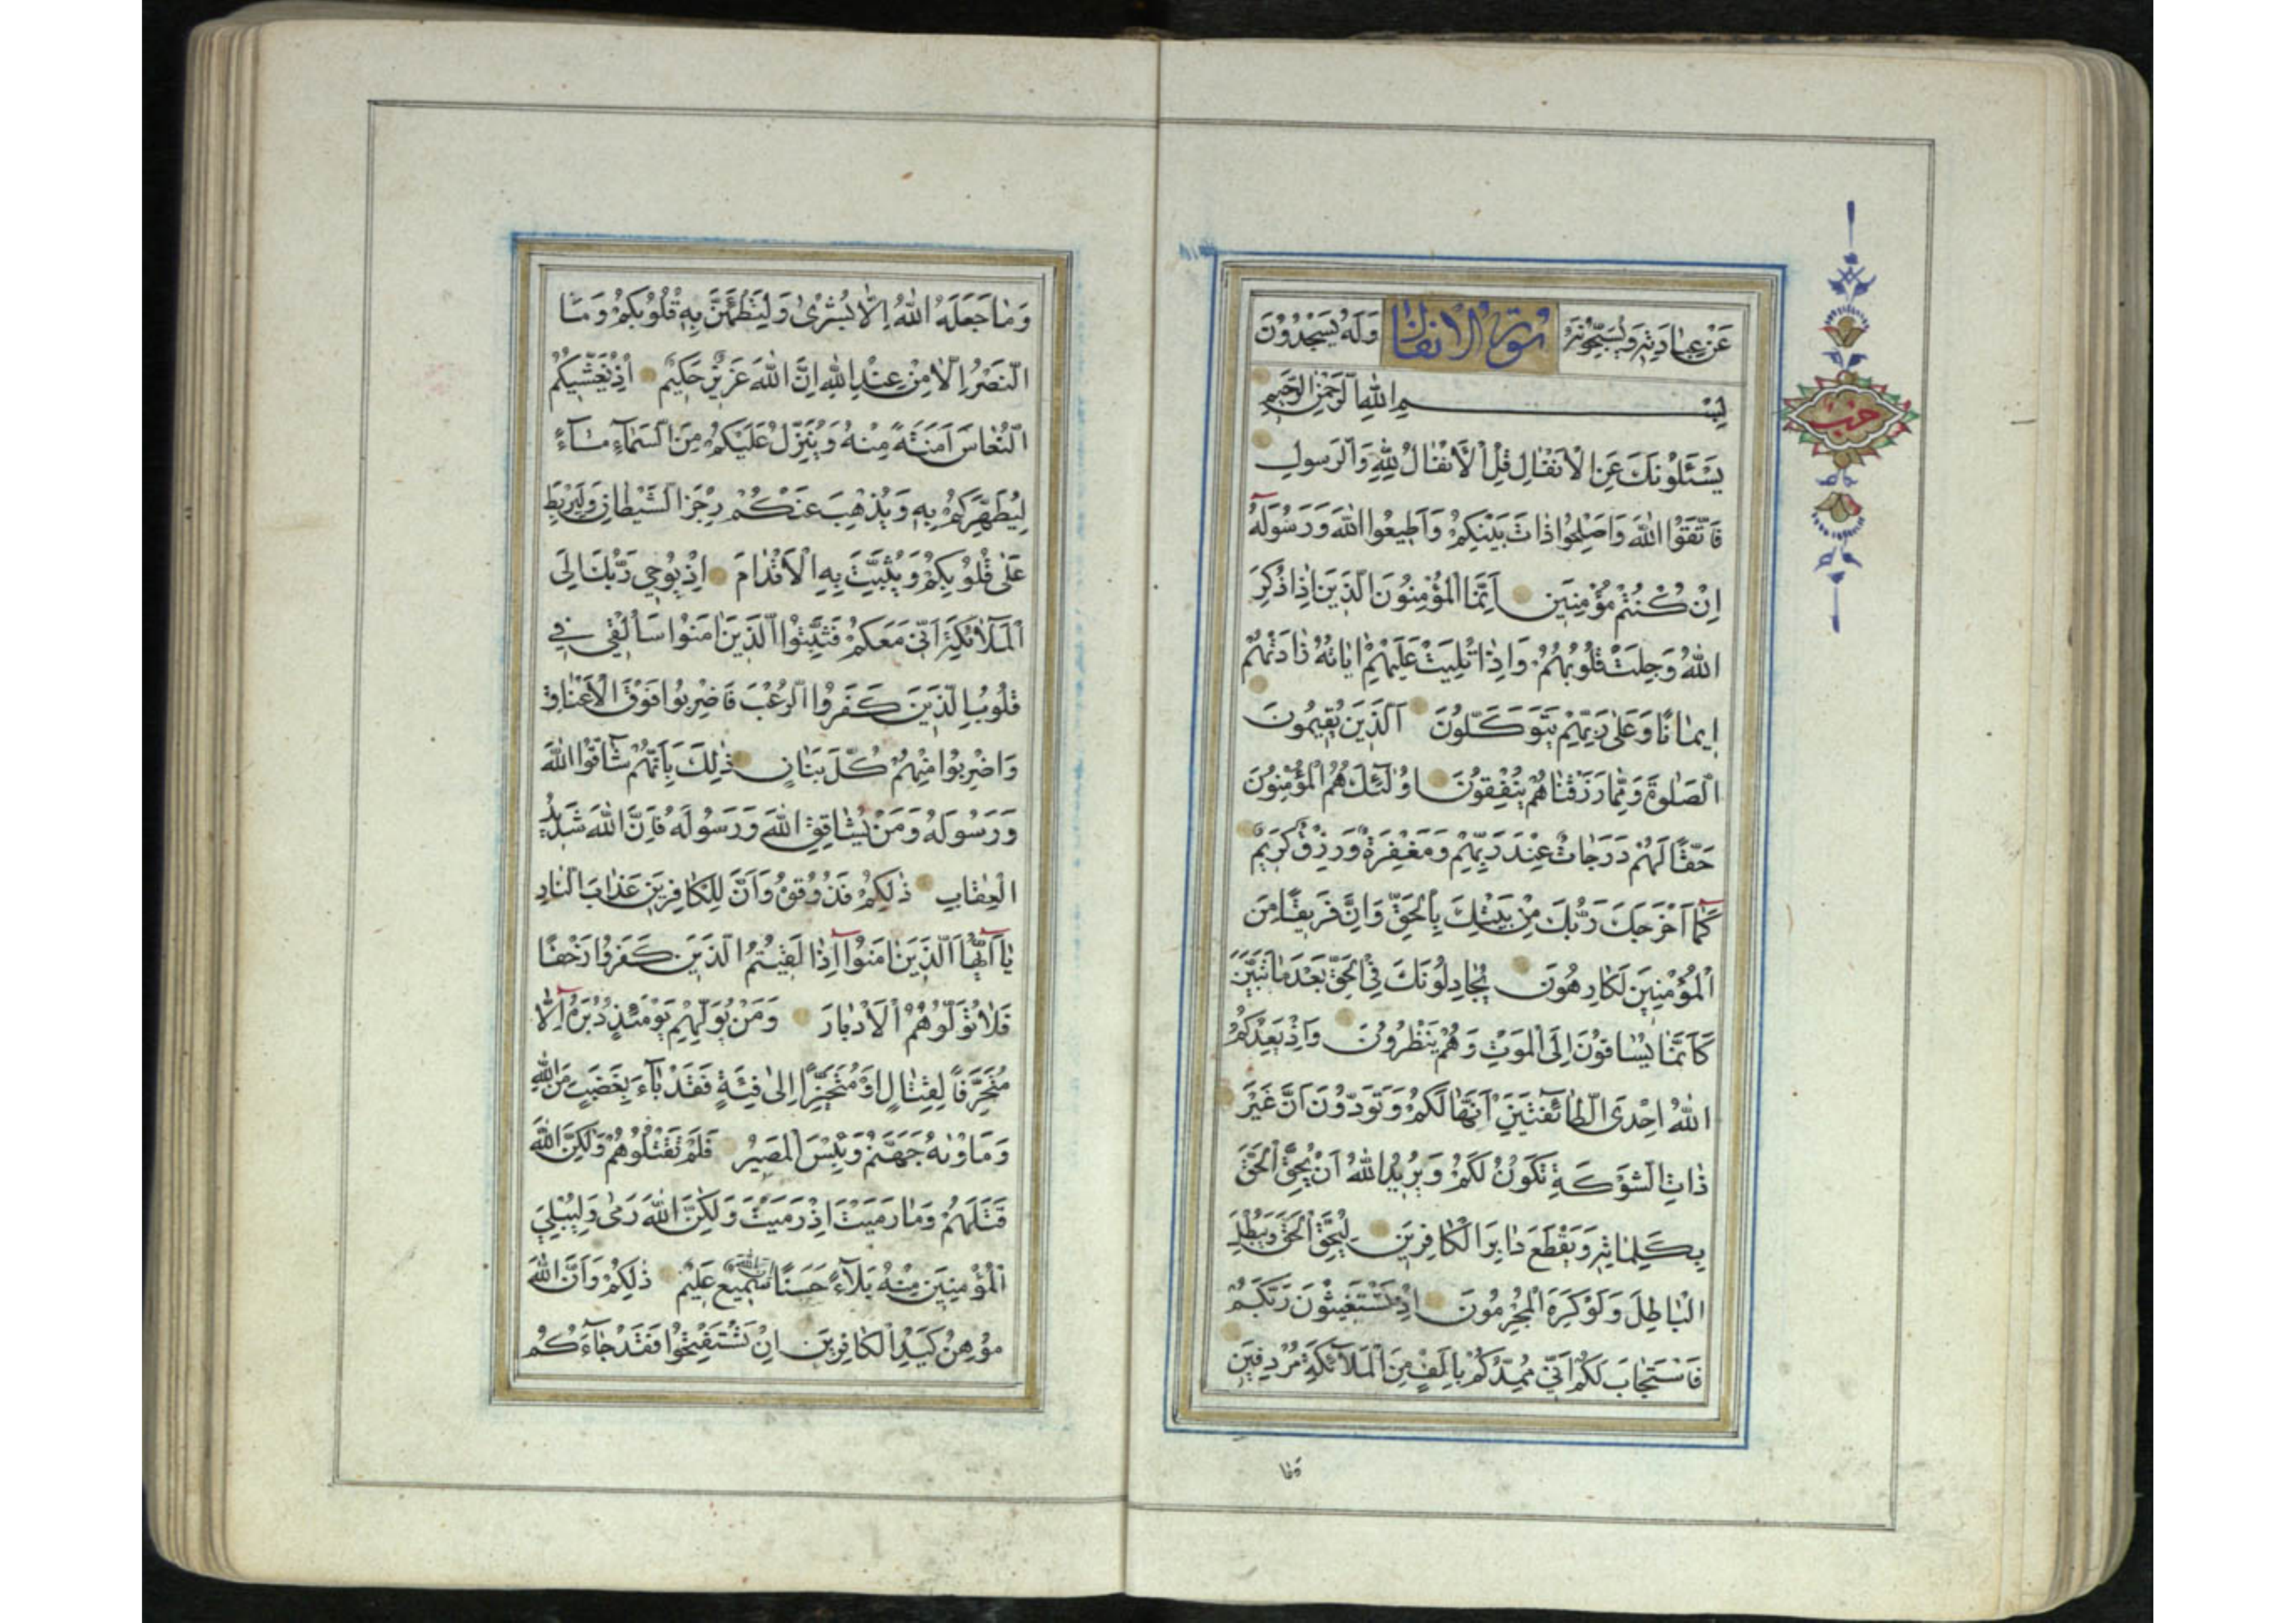 عَنْ عِبَادَتِهِ وَيُسَبِّحُونَهُ سورة الانفال وَلَهُ يَسْجُدُونَ
بِسْمِ اللهِ الرَّحْمٰنِ الرَّحِيمِ
يَسْئَلُونَكَ عَنِ الْاَنْفٰالِ قُلِ الْاَنْفٰالُ لِلّٰهِ وَالرَّسُولِ
فَاتَّقُوا اللهَ وَاَصْلِحُوا ذٰاتَ بَيْنِكُمْ وَاَطِيعُوا اللهَ وَرَسُولَهُ
اِنْ كُنْتُمْ مُؤْمِنِينَ اِنَّمَا الْمُؤْمِنُونَ الَّذِينَ اِذٰا ذُكِرَ
اللهُ وَجِلَتْ قُلُوبُهُمْ وَاِذٰا تُلِيَتْ عَلَيْهِمْ اٰيٰاتُهُ زٰادَتْهُمْ
اِيمٰانًا وَعَلٰى رَبِّهِمْ يَتَوَكَّلُونَ اَلَّذِينَ يُقِيمُونَ
الصَّلٰوةَ وَمِمّٰا رَزَقْنٰاهُمْ يُنْفِقُونَ اُولٰئِكَ هُمُ الْمُؤْمِنُونَ
حَقًّا لَهُمْ دَرَجٰاتٌ عِنْدَ رَبِّهِمْ وَمَغْفِرَةٌ وَرِزْقٌ كَرِيمٌ
كَمٰا اَخْرَجَكَ رَبُّكَ مِنْ بَيْتِكَ بِالْحَقِّ وَاِنَّ فَرِيقًا مِنَ
الْمُؤْمِنِينَ لَكٰارِهُونَ يُجٰادِلُونَكَ فِي الْحَقِّ بَعْدَ مٰا تَبَيَّنَ
كَاَنَّمٰا يُسٰاقُونَ اِلَى الْمَوْتِ وَهُمْ يَنْظُرُونَ وَاِذْ يَعِدُكُمُ
اللهُ اِحْدَى الطّٰائِفَتَيْنِ اَنَّهٰا لَكُمْ وَتَوَدُّونَ اَنَّ غَيْرَ
ذٰاتِ الشَّوْكَةِ تَكُونُ لَكُمْ وَيُرِيدُ اللهُ اَنْ يُحِقَّ الْحَقَّ
بِكَلِمٰاتِهِ وَيَقْطَعَ دٰابِرَ الْكٰافِرِينَ لِيُحِقَّ الْحَقَّ وَيُبْطِلَ
الْبٰاطِلَ وَلَوْ كَرِهَ الْمُجْرِمُونَ اِذْ تَسْتَغِيثُونَ رَبَّكُمْ
فَاسْتَجٰابَ لَكُمْ اَنِّي مُمِدُّكُمْ بِاَلْفٍ مِنَ الْمَلٰائِكَةِ مُرْدِفِينَ
وَمٰا
حزب
وَمٰا جَعَلَهُ اللهُ اِلّٰا بُشْرٰى وَلِتَطْمَئِنَّ بِهِ قُلُوبُكُمْ وَمَا
النَّصْرُ اِلّٰا مِنْ عِنْدِ اللهِ اِنَّ اللهَ عَزِيزٌ حَكِيمٌ اِذْ يُغَشِّيكُمُ
النُّعٰاسَ اَمَنَةً مِنْهُ وَيُنَزِّلُ عَلَيْكُمْ مِنَ السَّمٰاءِ مٰاءً
لِيُطَهِّرَكُمْ بِهِ وَيُذْهِبَ عَنْكُمْ رِجْزَ الشَّيْطٰانِ وَلِيَرْبِطَ
عَلٰى قُلُوبِكُمْ وَيُثَبِّتَ بِهِ الْاَقْدٰامَ اِذْ يُوحِي رَبُّكَ اِلَى
الْمَلٰائِكَةِ اَنِّي مَعَكُمْ فَثَبِّتُوا الَّذِينَ اٰمَنُوا سَاُلْقِي فِي
قُلُوبِ الَّذِينَ كَفَرُوا الرُّعْبَ فَاضْرِبُوا فَوْقَ الْاَعْنٰاقِ
وَاضْرِبُوا مِنْهُمْ كُلَّ بَنٰانٍ ذٰلِكَ بِاَنَّهُمْ شٰاقُّوا اللهَ
وَرَسُولَهُ وَمَنْ يُشٰاقِقِ اللهَ وَرَسُولَهُ فَاِنَّ اللهَ شَدِيدُ
الْعِقٰابِ ذٰلِكُمْ فَذُوقُوهُ وَاَنَّ لِلْكٰافِرِينَ عَذٰابَ النّٰارِ
يٰا اَيُّهَا الَّذِينَ اٰمَنُوا اِذٰا لَقِيتُمُ الَّذِينَ كَفَرُوا زَحْفًا
فَلٰا تُوَلُّوهُمُ الْاَدْبٰارَ وَمَنْ يُوَلِّهِمْ يَوْمَئِذٍ دُبُرَهُ اِلّٰا
مُتَحَرِّفًا لِقِتٰالٍ اَوْ مُتَحَيِّزًا اِلٰى فِئَةٍ فَقَدْ بٰاءَ بِغَضَبٍ مِنَ اللهِ
وَمَأْوٰيهُ جَهَنَّمُ وَبِئْسَ الْمَصِيرُ فَلَمْ تَقْتُلُوهُمْ وَلٰكِنَّ اللهَ
قَتَلَهُمْ وَمٰا رَمَيْتَ اِذْ رَمَيْتَ وَلٰكِنَّ اللهَ رَمٰى وَلِيُبْلِيَ
الْمُؤْمِنِينَ مِنْهُ بَلٰاءً حَسَنًا اِنَّ اللهَ سَمِيعٌ عَلِيمٌ ذٰلِكُمْ وَاَنَّ اللهَ
مُوهِنُ كَيْدِ الْكٰافِرِينَ اِنْ تَسْتَفْتِحُوا فَقَدْ جٰاءَكُمُ